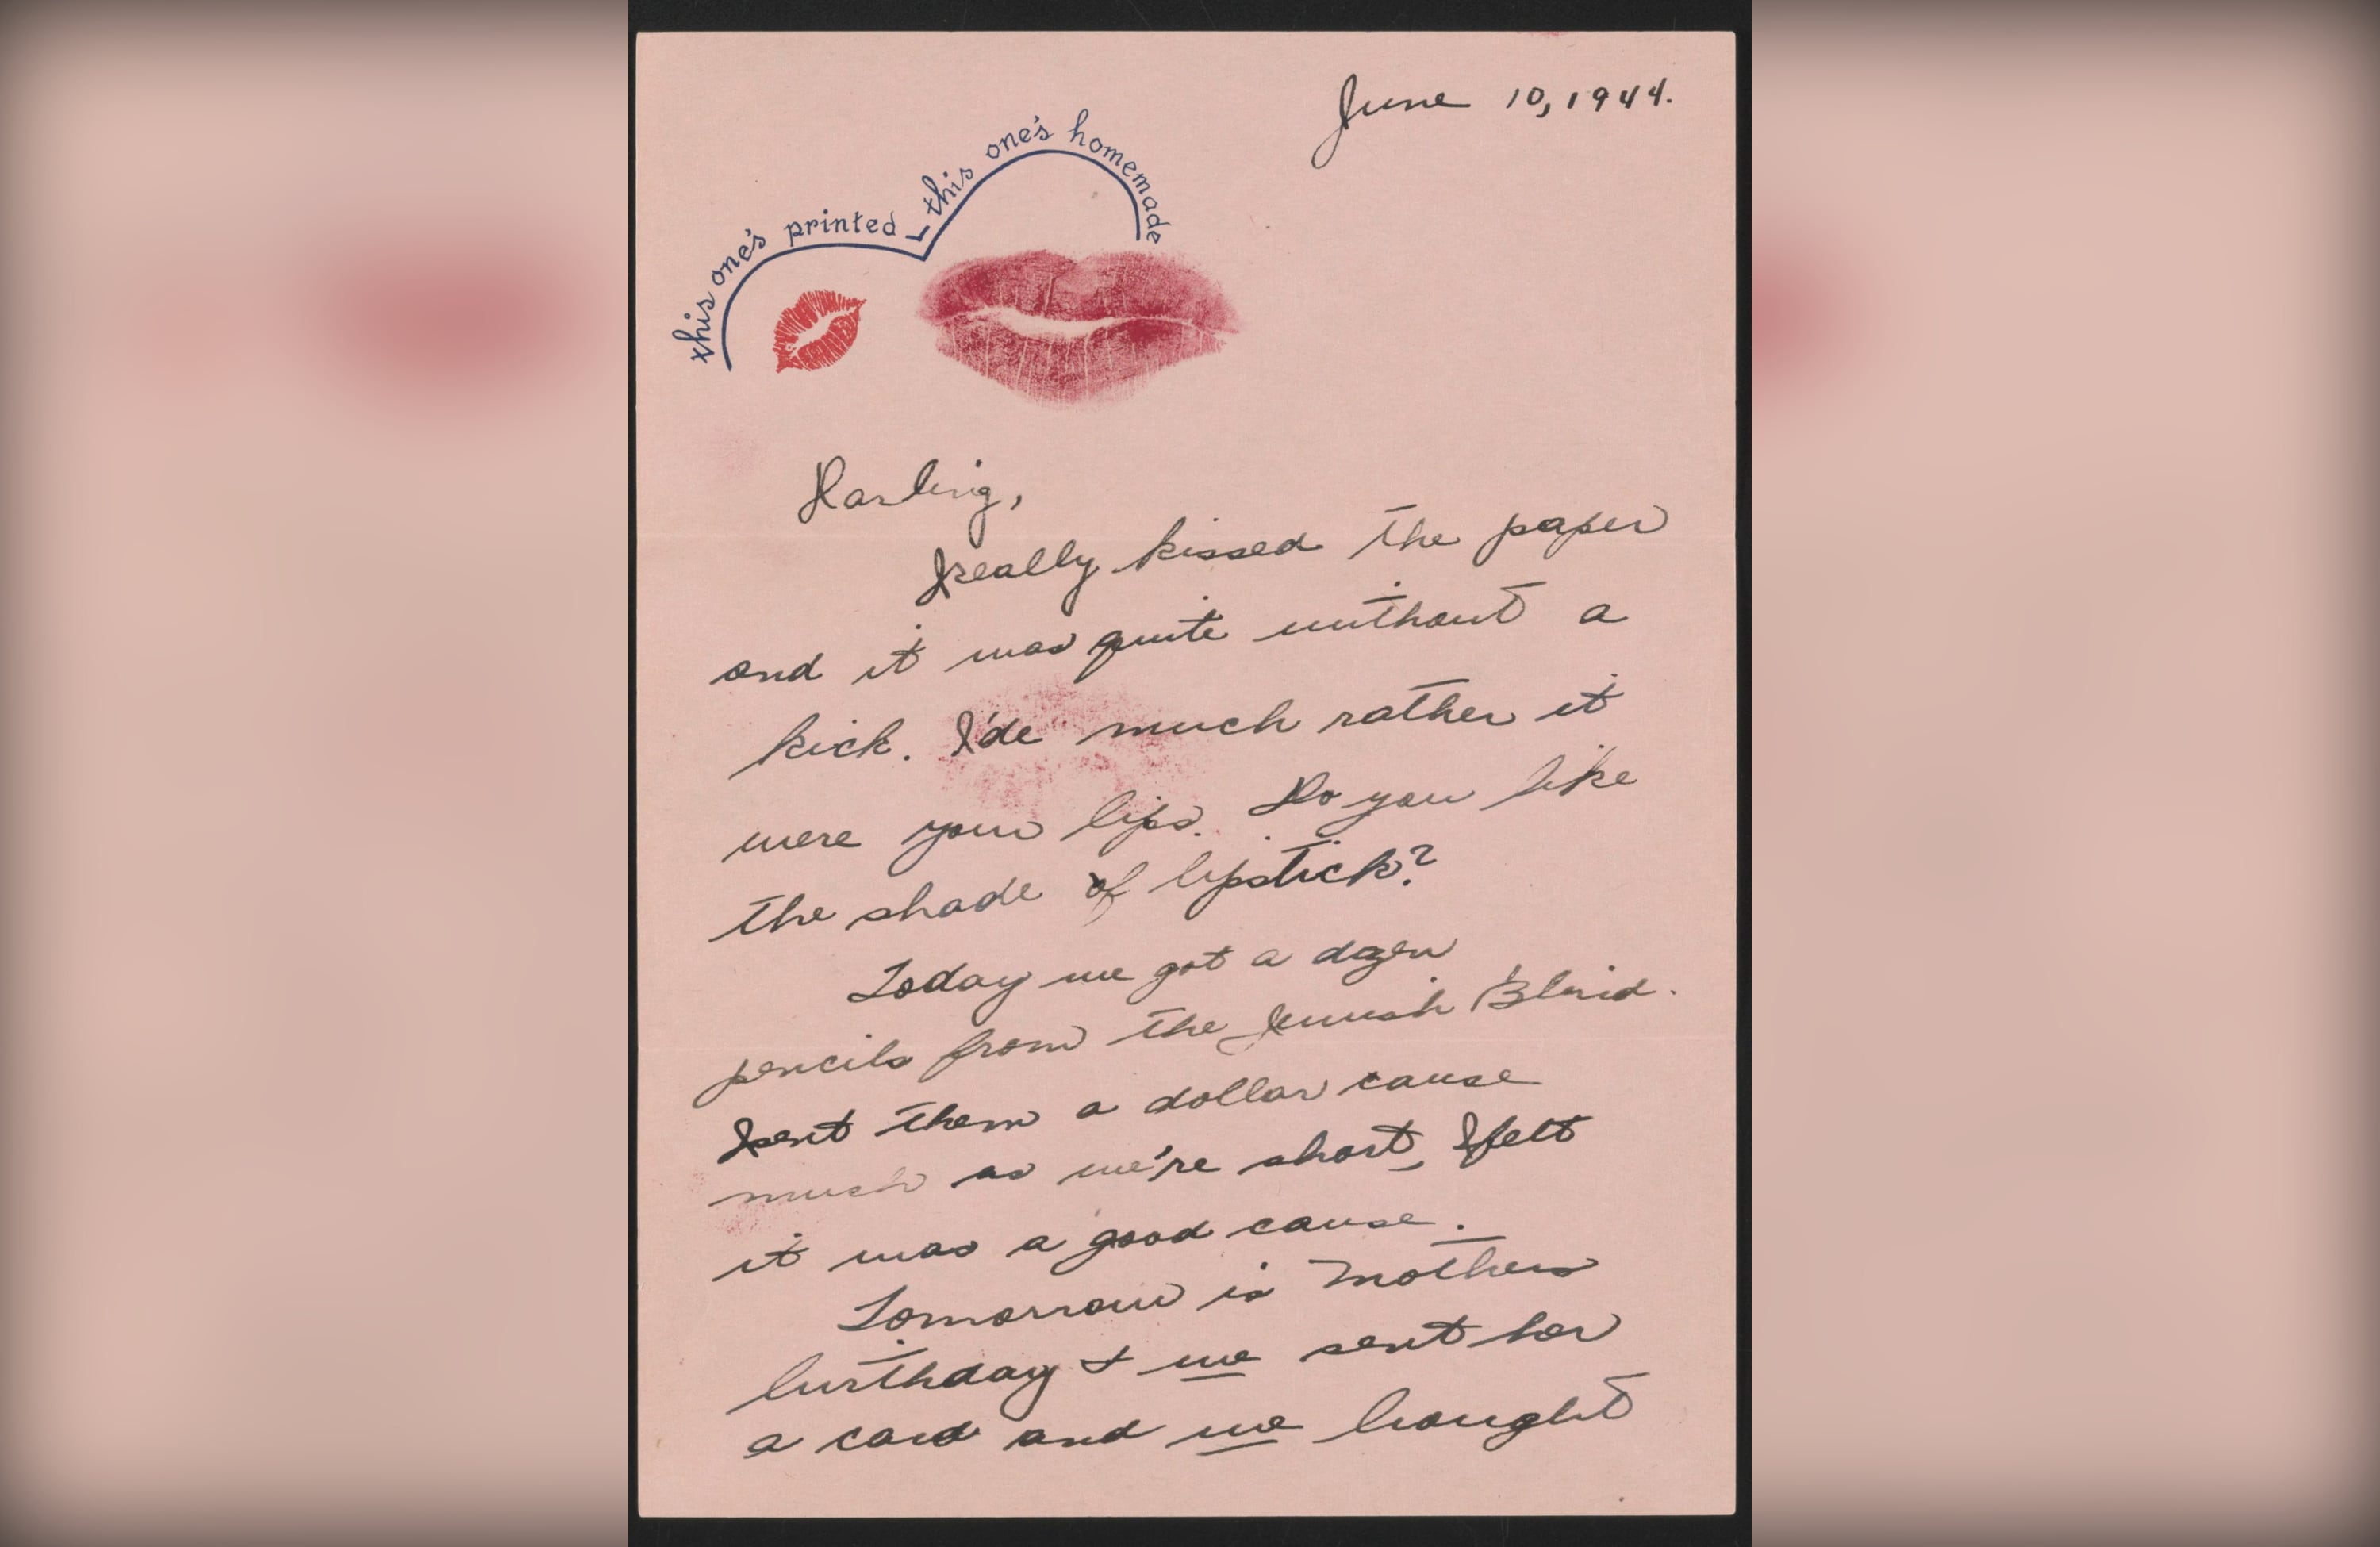 June 10, 1944.
this one's printed - this one's homemade
Darling,
I really kissed the paper
and it was quite without a
kick. I'de much rather it
were your lips. Do you like
the shade of lipstick?
Today we got a dozen
pencils from the Jewish Blind.
I sent them a dollar cause
much as we're short, I felt
it was a good cause.
Tomorrow is Mothers
birthday & we sent her
a card and we bought